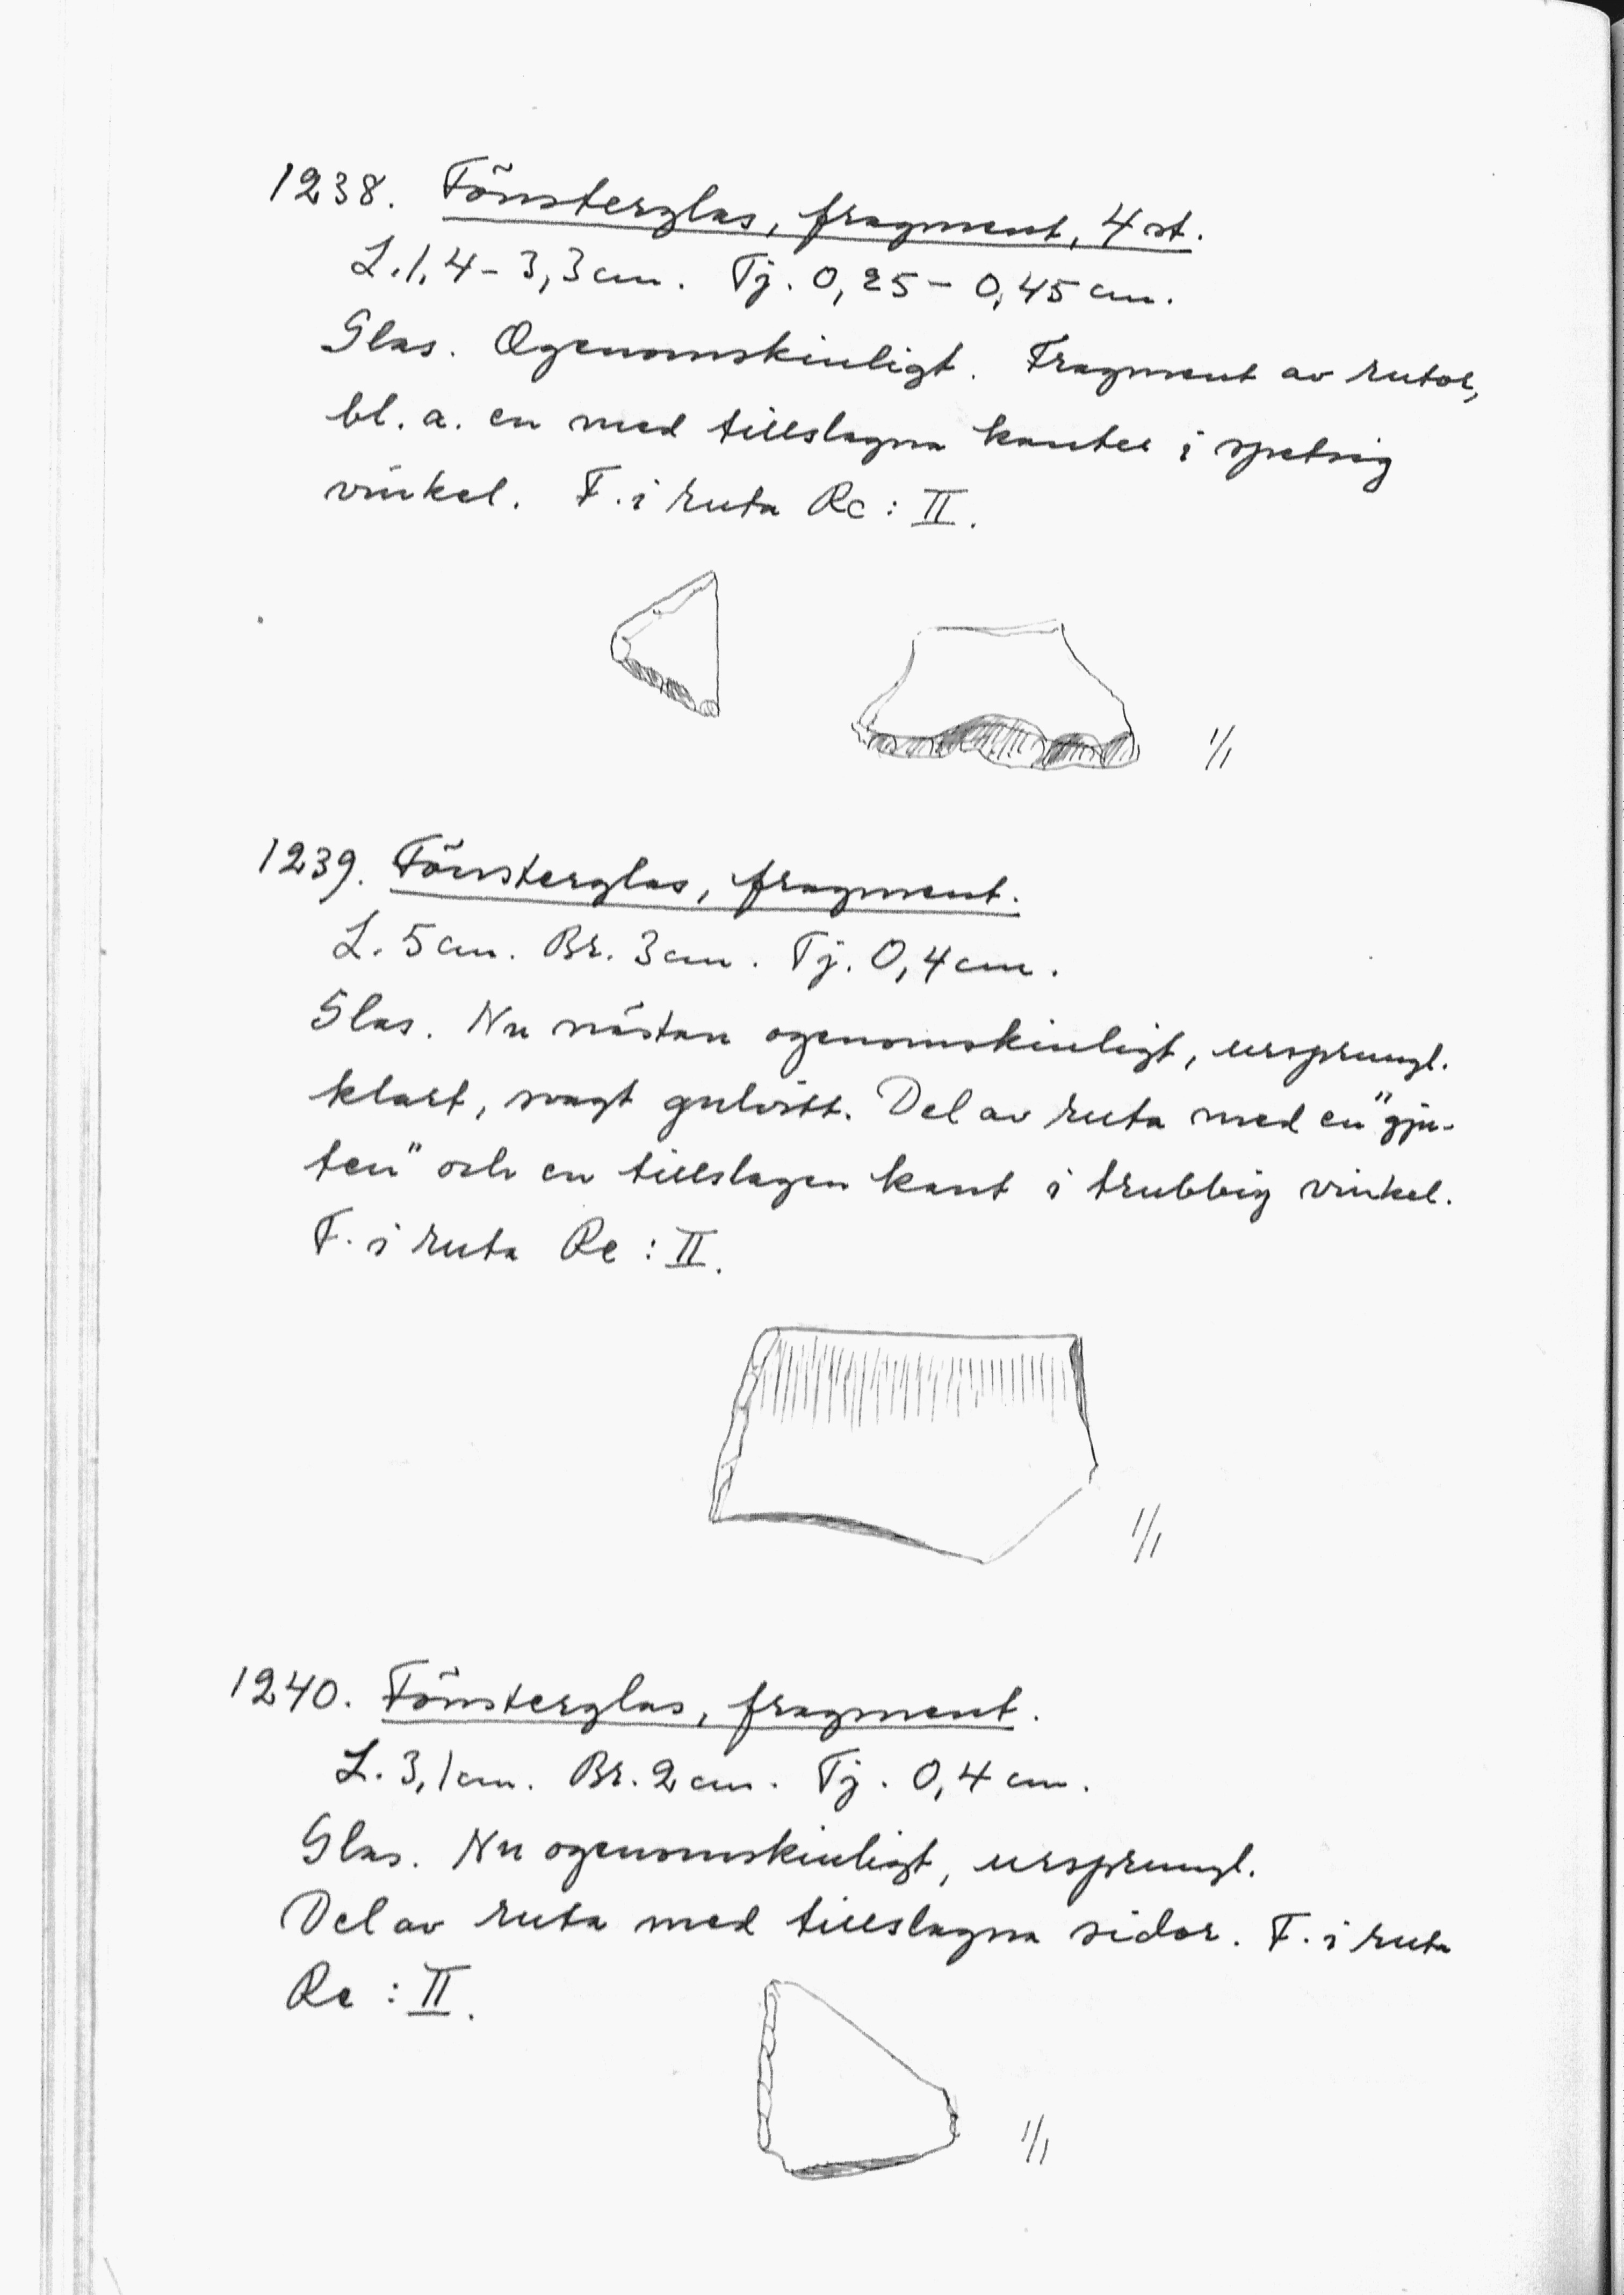 1238. Fönsterglas, fragment, 4 st.
L. 1,4 - 3,3 cm. Tj. 0,25 - 0,45 cm.
Glas. Ogenomskinligt. Fragment av rutor,
bl. a. en med tillslagna kanter i spetsig
vinkel. F. i ruta Rc : II.
1/1
1239. Fönsterglas, fragment.
L. 5 cm. Br. 3 cm. Tj. 0,4 cm.
Glas. Nu nästan ogenomskinligt, ursprungl.
klart, svagt gulvitt. Del av ruta med en "gju-
ten" och en tillslagen kant i trubbig vinkel.
F. i ruta Rc : II.
1/1
1240. Fönsterglas, fragment.
L. 3,1 cm. Br. 2 cm. Tj. 0,4 cm.
Glas. Nu ogenomskinligt, ursprungl.
Del av ruta med tillslagna sidor. F. i ruta
Rc : II.
1/1